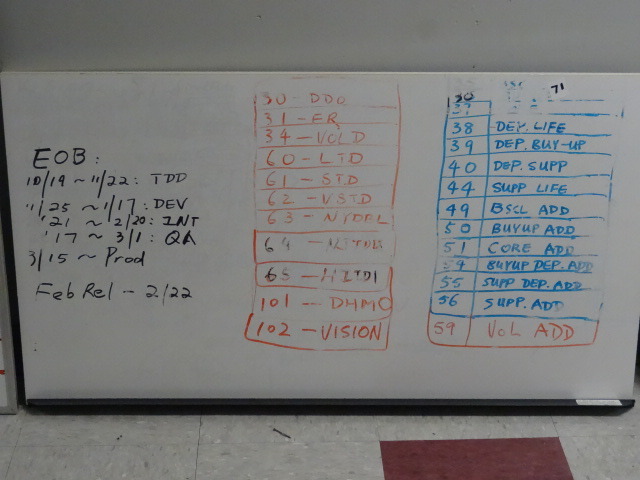 EOB:
10/19 ~ 11/22: TDD
11/25 ~ 1/17: DEV
1/21 ~ 2/20: INT
1/17 ~ 3/1: QA
3/15 ~ Prod
Feb Rel - 2/22
30 - DDQ
31 - ER
34 - VOLD
60 - LTD
61 - STD
62 - VSTD
63 - NYDFL
64
65
101 - DHMO
102 - VISION
71
38 DEP. LIFE
39 DEP. BUY-UP
40 DEP. SUPP
44 SUPP LIFE
49 BSCL ADD
50 BUYUP ADD
51 CORE ADD
54 BUYUP DEP. ADD
55 SUPP DEP. ADD
56 SUPP. ADD
59 VOL ADD